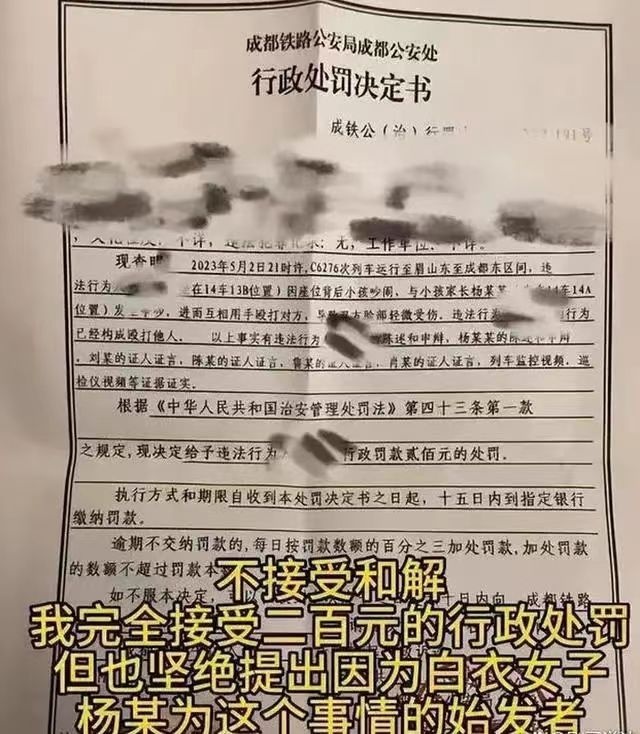 成都铁路公安局成都公安处
行政处罚决定书
成铁公（治）行罚 191号
不详，违法犯罪记录：无，工作单位：不详。
现查明 2023年5月2日21时许，C6276次列车运行至眉山东至成都东区间，违
法行为 在14车13B位置）因座位背后小孩吵闹，与小孩家长杨某 14车14A
位置）发生 ，进而互相用手殴打对方，导致双方脸部轻微受伤。违法行为 行为
已经构成殴打他人。 以上事实有违法行为 陈述和申辩，杨某某的陈述和申辩，
刘某的证人证言，陈某的证人证言，鲁某的证人证言，肖某的证人证言，列车监控视频，巡
检仪视频等证据证实。
根据《中华人民共和国治安管理处罚法》第四十三条第一款
之规定，现决定给予违法行为 行政罚款贰佰元的处罚。
执行方式和期限自收到本处罚决定书之日起，十五日内到指定银行
缴纳罚款。
逾期不交纳罚款的，每日按罚款数额的百分之三加处罚款，加处罚款
的数额不超过罚款本
如不服本决定， 十日内向 成都铁路
不接受和解
我完全接受二百元的行政处罚
但也坚绝提出因为白衣女子
杨某为这个事情的始发者